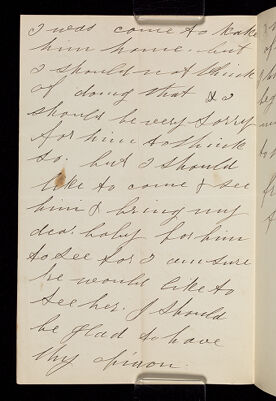 I was come to take
him home. but
I should not think
of doing that & I
should be very sorry
for him to think
so. but I should
like to come & see
him & bring my
dear baby for him
to see for I am sure
he would like to
see her. I should
be glad to have
thy opinion.